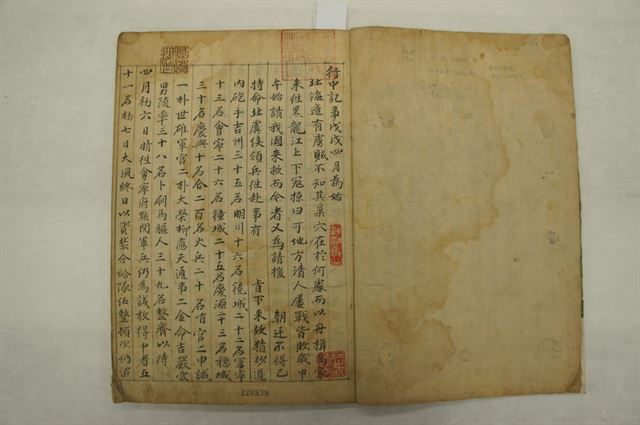 行中記事戊戌四月為始
北海邊有虜賊不知其巢穴在於何處而以舟楫為家
來往黑龍江上下冦掠曰可地方清人屢戰皆敗歲甲
午始請我國來救而今者又為請援 朝廷不得已
特命北虞候領兵往赴事有 肯下來故精抄道
內砲手吉州三十五名明川十六名鏡城二十二名富寧
十三名會寧二十六名鍾城二十五名慶源二十三名穩城
三十名慶興十名合二百名火兵二十名哨官二申誠
一朴世雄軍官二朴大榮柳應天通事二金命吉嚴
男隨率三十八名卜刷馬驅人三十九名整齊以待
四月初六日時往會寧府點閱軍兵仍為試放得中者五
十一名初七日大風終日以資裝分給隊伍整頓次仍留
126839